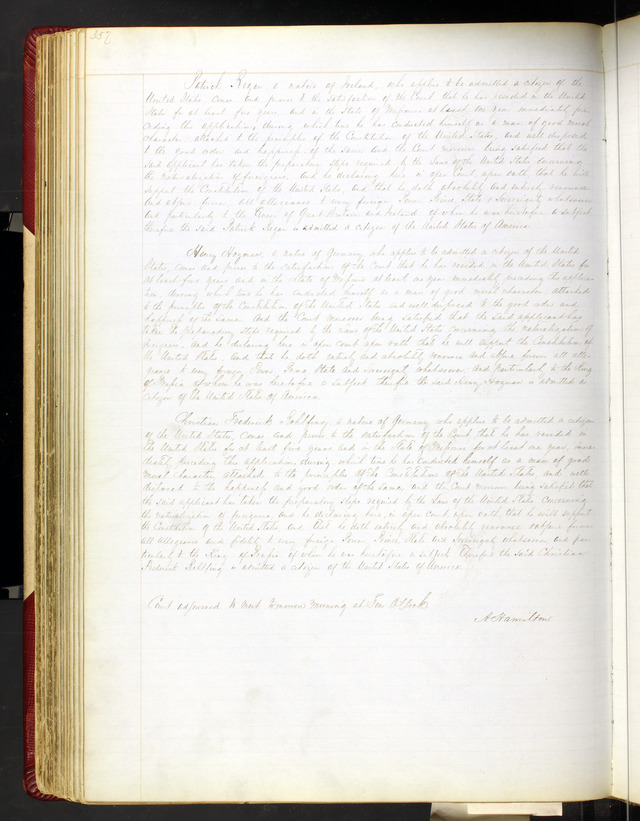 357
Patrick Regan, a native of Ireland, who applies to be admitted a citizen of the
United States comes and proves to the satisfaction of the Court that he has resided in the United
States for at least five years and in the State of Missouri at least one year immediately pre
ceding this application, during which time he has conducted himself as a man of good moral
character, attached to the principles of the Constitution of the United States, and well disposed
to the good order and happiness of the same And the Court moreover being satisfied that the
said applicant has taken the preparatory steps required by the laws of the United States concerning
the naturalization of foreigners, and he declaring here in open Court upon oath that he will
support the Constitution of the United States, and that he doth absolutely and entirely renounce
and abjure forever all allegiance to every foreign Power Prince State & Sovereignty whatsoever
and particularly to the Queen of Great Britain and Ireland of whom he was heretofore a subject
therefore the said Patrick Regan is admitted a citizen of the United States of America
Henry, a native of Germany who applies to be admitted a citizen of the United
States, comes and proves to the satisfaction of the Court that he has resided in the United States for
at least five years and in the State of Missouri at least one year immediately preceding this applica
tion, during which time he has conducted himself as a man of good moral character attached
to the principles of the Constitution of the United States and well disposed to the good order and
happiness of the same And the Court moreover being satisfied that the said applicant has
taken the preparatory steps required by the laws of the United States concerning the naturalization of
foreigners, and he declaring here in open court upon oath that he will support the Constitution of
the United States and that he doth entirely and absolutely renounce and abjure forever all alle-
giance to every foreign Power, Prince State and Sovereignty whatsoever, and particularly to the King
of Prussia of whom he was heretofore a subject therefore the said Henry is admitted a
citizen of the United States of America
Christian Frederick, a native of Germany who applies to be admitted a citizen
of the United States, comes and proves to the satisfaction of the Court that he has resided in
the United States for at least five years and in the State of Missouri for at least one year imme
diately preceding this application, during which time he has conducted himself as a man of good
moral character attached to the principles of the of the United States and well
disposed to the happiness and good order of the same and the Court moreover being satisfied that
the said applicant has taken the preparatory steps required by the Laws of the United States concerning
the naturalization of foreigners, and he declaring here in open court upon oath that he will support
the Constitution of the United States and that he doth entirely and absolutely renounce & abjure forever
all allegiance and fidelity to every foreign Power Prince State and Sovereignty whatsoever and par
ticularly to the King of Prussia of whom he was heretofore a subject therefore the said Christian
Frederick is admitted a citizen of the United States of America
Court adjourned to meet tomorrow morning at Ten O'Clock
A Hamilton